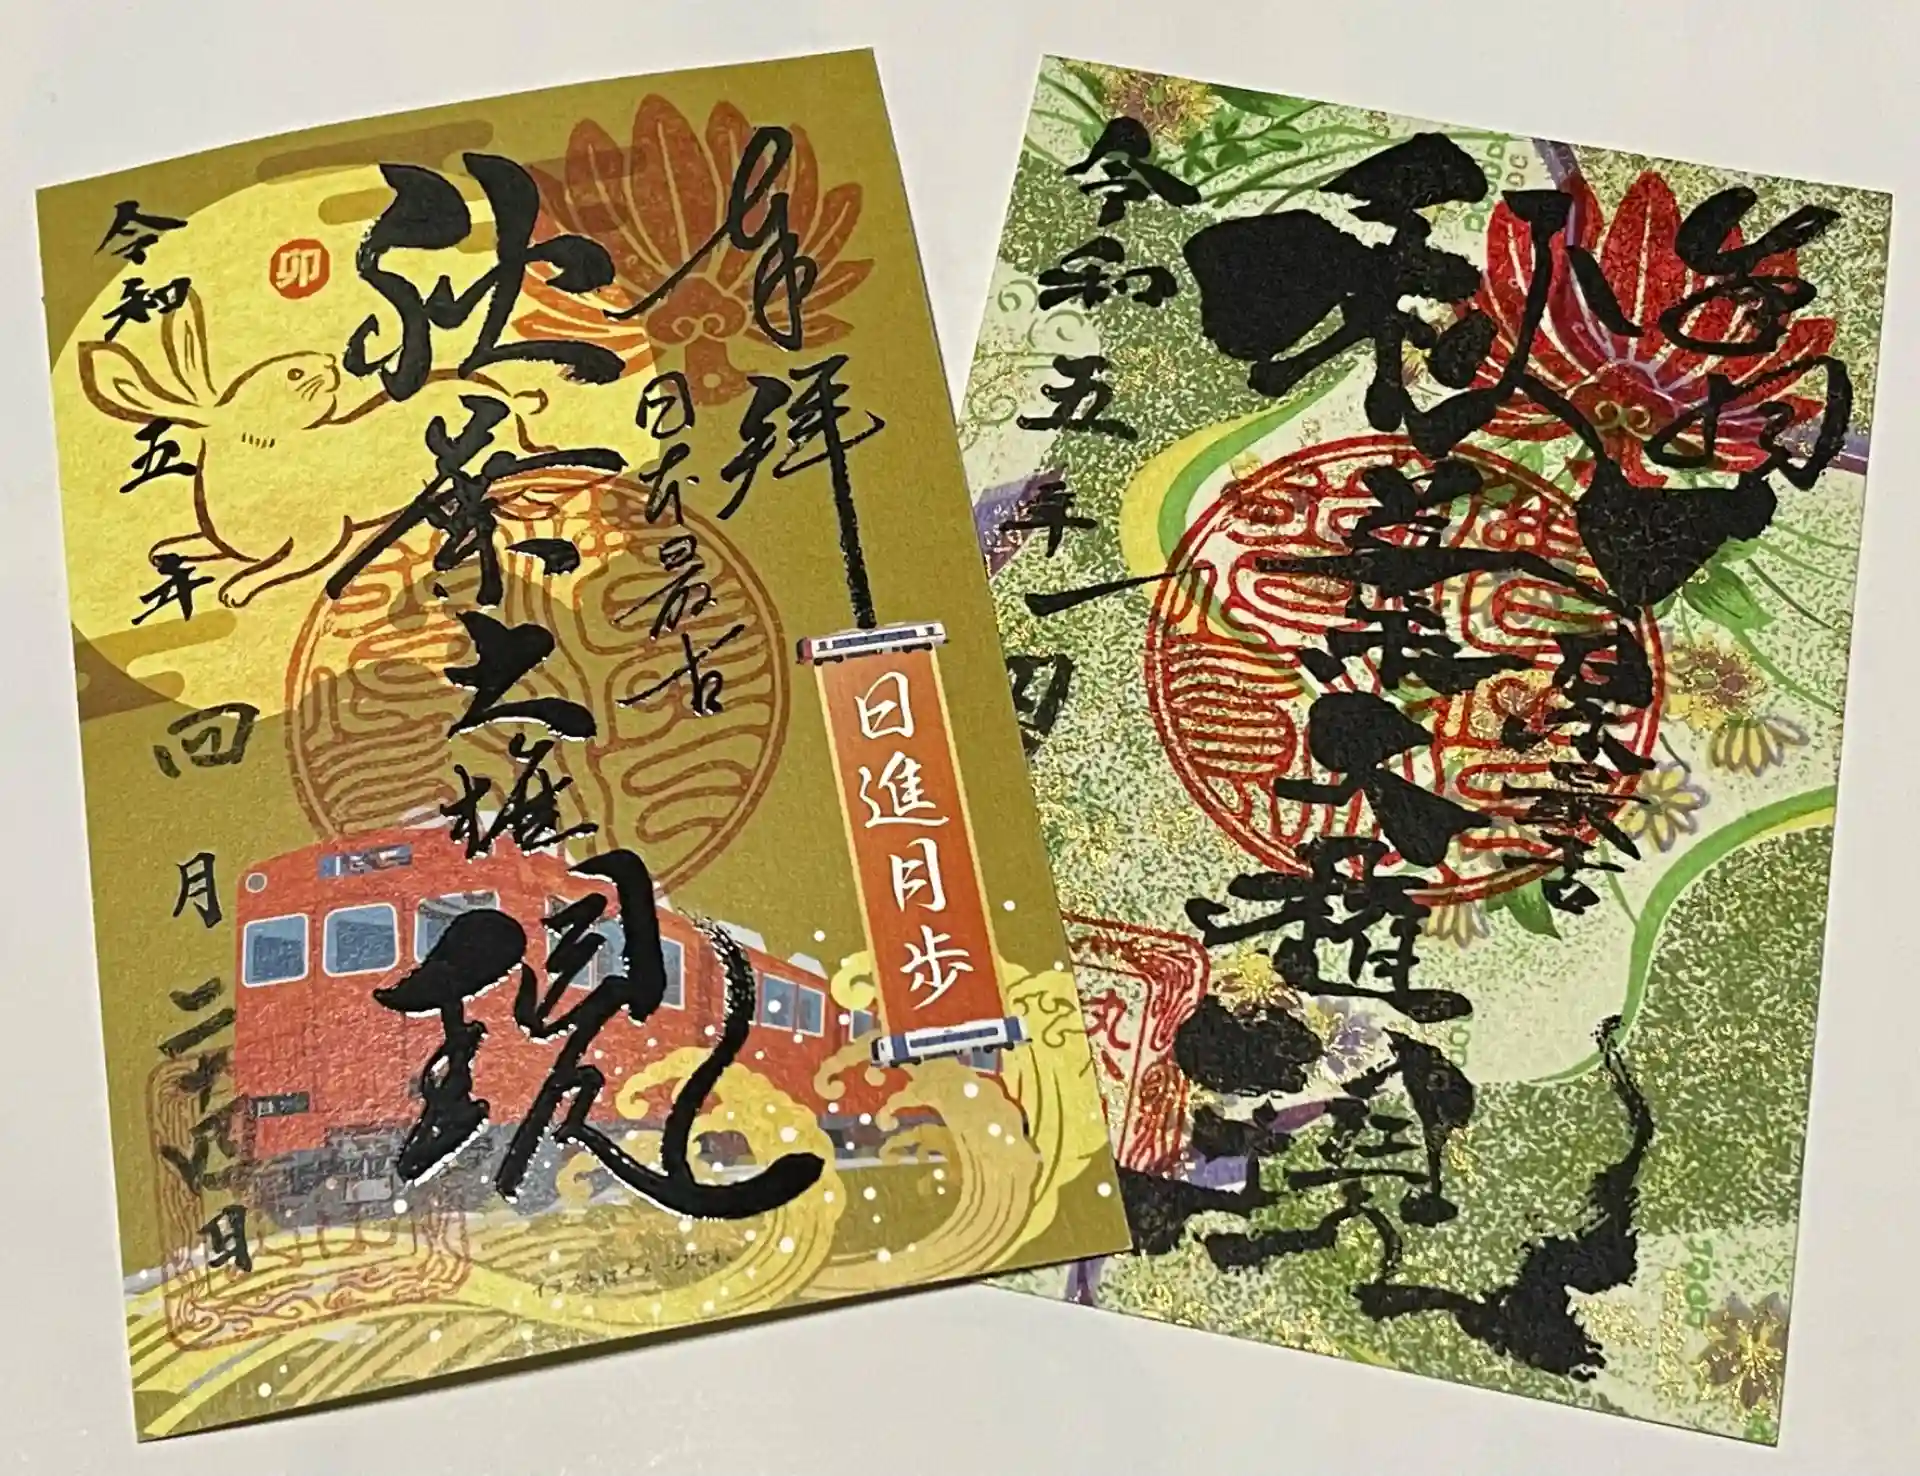 奉拝
日本最古
秋葉大権現
卯
令和五年
四月二十四日
日進月歩
イラストはイメージです。
日本最古
秋葉大権現
令和五年
四